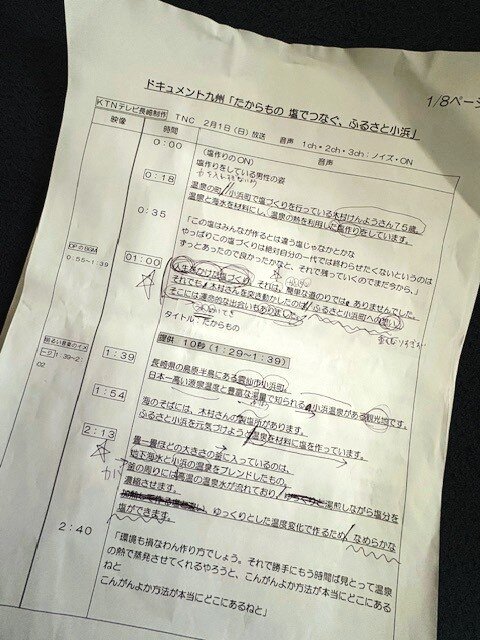 ドキュメント九州「たからもの 塩でつなぐ、ふるさと小浜」
1/8ペー
KTNテレビ長崎制作 TNC 2月1日(日)放送 音声 1ch・2ch・3ch:ノイズ・ON
映像 時間 音声
0:00 (塩作りのON)
塩作りをしている男性の姿
0:18 温泉の町//小浜町で塩づくりを行っている木村けんようさん75歳。
温泉と海水を材料にし、温泉の熱を利用した塩作りをしています。
0:35 「この塩はみんなが作るとは違う塩じゃなかとかな
やっぱりこの塩づくりは絶対自分の一代では終わらせたくないというのは
ずっとあったので良かったかなと、それで残っていくのでまだ今から。」
OPのBGM
0:55~1:39
01:00 人生をかけた塩づくり。それは、簡単な道のりではありませんでした。
それでも木村さんを突き動かしたのは/ふるさと小浜町への想い。
そこには運命的な出会いもありました。
タイトル―たからもの
提供 10秒(1:29~1:39)
1:39~2:02
1:39 長崎県の島原半島にある雲仙市小浜町。
日本一高い源泉温度と豊富な湯量で知られる小浜温泉がある観光地です。
1:54 海のそばには、木村さんの製塩所があります。
ふるさと小浜を元気づけようと温泉を材料に塩を作っています。
2:13 畳一畳ほどの大きさの釜に入っているのは、
地下海水と小浜の温泉をブレンドしたもの。
釜の周りには高温の温泉水が流れており/湯煎しながら塩分を
濃縮させます。
ゆっくりとした温度変化で作るため/なめらかな
塩ができます。
2:40 「環境も損なわん作り方でしょう。それで勝手にもう時間ば見とって温泉
の熱で蒸発させてくれるやろうと、こんがんよか方法が本当にどこにある
ねと
こんがんよか方法が本当にどこにあるねと」